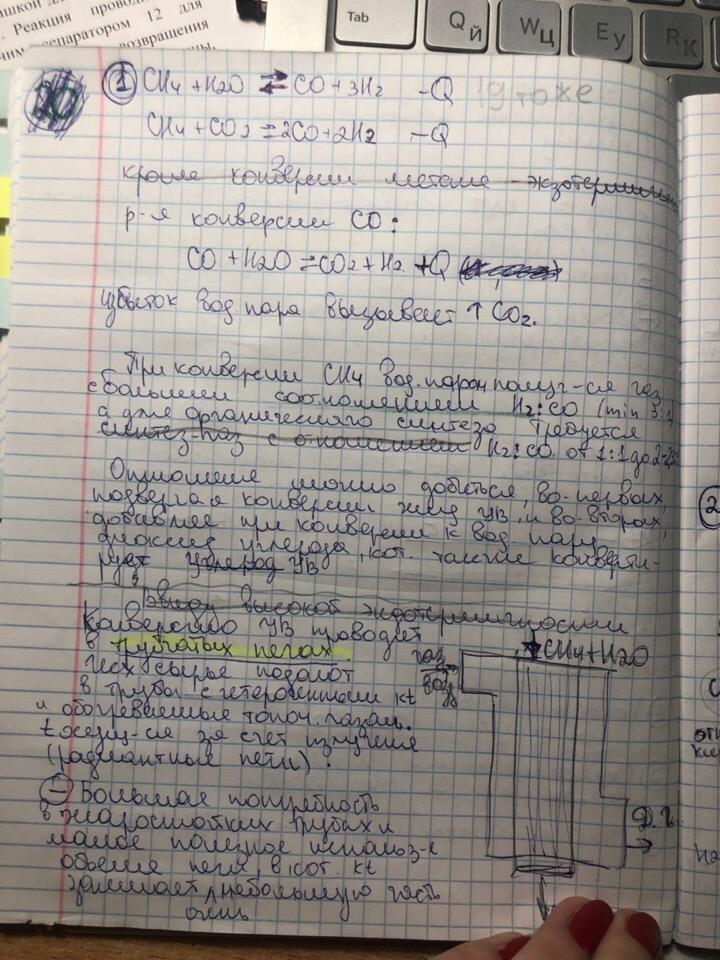 ашкой
. Реакция прово
чим сепаратором 12 для
возвращения
Tab
Q Й
W Ц
E У
R К
20
1 CH4 + H2O ⇄ CO + 3H2 -Q 19 тоже
CH4 + CO2 = 2CO + 2H2 -Q
кроме конверсии метана - экзотермичн
р-я конверсии CO:
CO + H2O = CO2 + H2 +Q
избыток вод пара вызывает ↑ CO2.
При конверсии CH4 вод. паром получ-ся газ
с большим соотношением H2:CO (min 3:1)
а для органического синтеза требуется
синтез-газ с отношением H2:CO от 1:1 до 2-
Отношения можно добиться, во-первых,
подвергая конверсии жид УВ, и во-вторых,
добавлее при конверсии к вод пару
диоксид углерода, кот. также конверти-
рует углерод УВ
Ввиду высокой экзотермичности
Конверсию УВ проводят
в трубчатых печах.
Исх сырье подают
в трубы с гетерогенными kt
и обогреваемые топоч. газами.
t осущ-ся за счет излучения
(радиантные печи).
газ
возд
CH4+H2O
Д.г.
⊖ Большая потребность
в жаростойких трубах и
малое полезное использ-е
объема печи, в кот. kt
занимает небольшую часть
очень
2